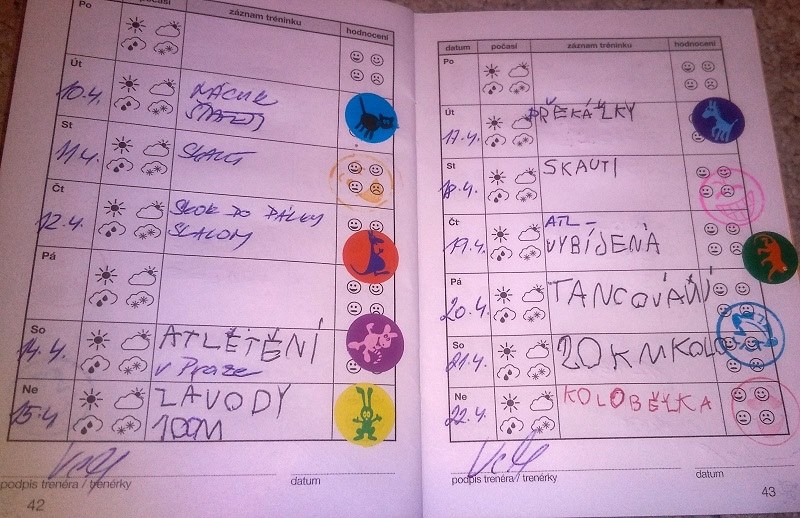 Po
počasí
záznam tréninku
hodnocení
Út
10.4.
NÁCVIK
ŠTAFETY
St
11.4.
SKAUT
Čt
12.4.
SKOK DO DÁLKY
SLALOM
Pá
So
14.4.
ATLÉTĚNÍ
v Praze
Ne
15.4
ZÁVODY
100M
podpis trenéra / trenérky
datum
42
datum
počasí
záznam tréninku
hodnocení
Po
Út
17.4.
PŘEKÁŽKY
St
18.4.
SKAUTI
Čt
19.4.
ATL –
VYBÍJENÁ
Pá
20.4.
TANCOVÁNÍ
So
21.4.
20 KM KOLO
Ne
22.4.
KOLOBĚŽKA
podpis trenéra / trenérky
datum
43